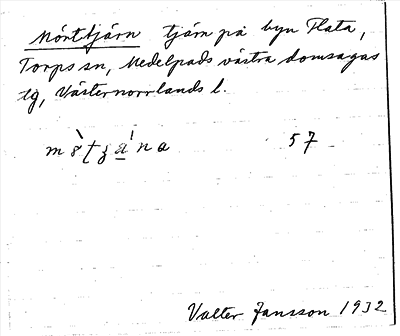 Mörttjärn tjärn på byn Flata,
Torps sn, Medelpads västra domsagas
tg, Västernorrlands l.
57
Valter Jansson 1932